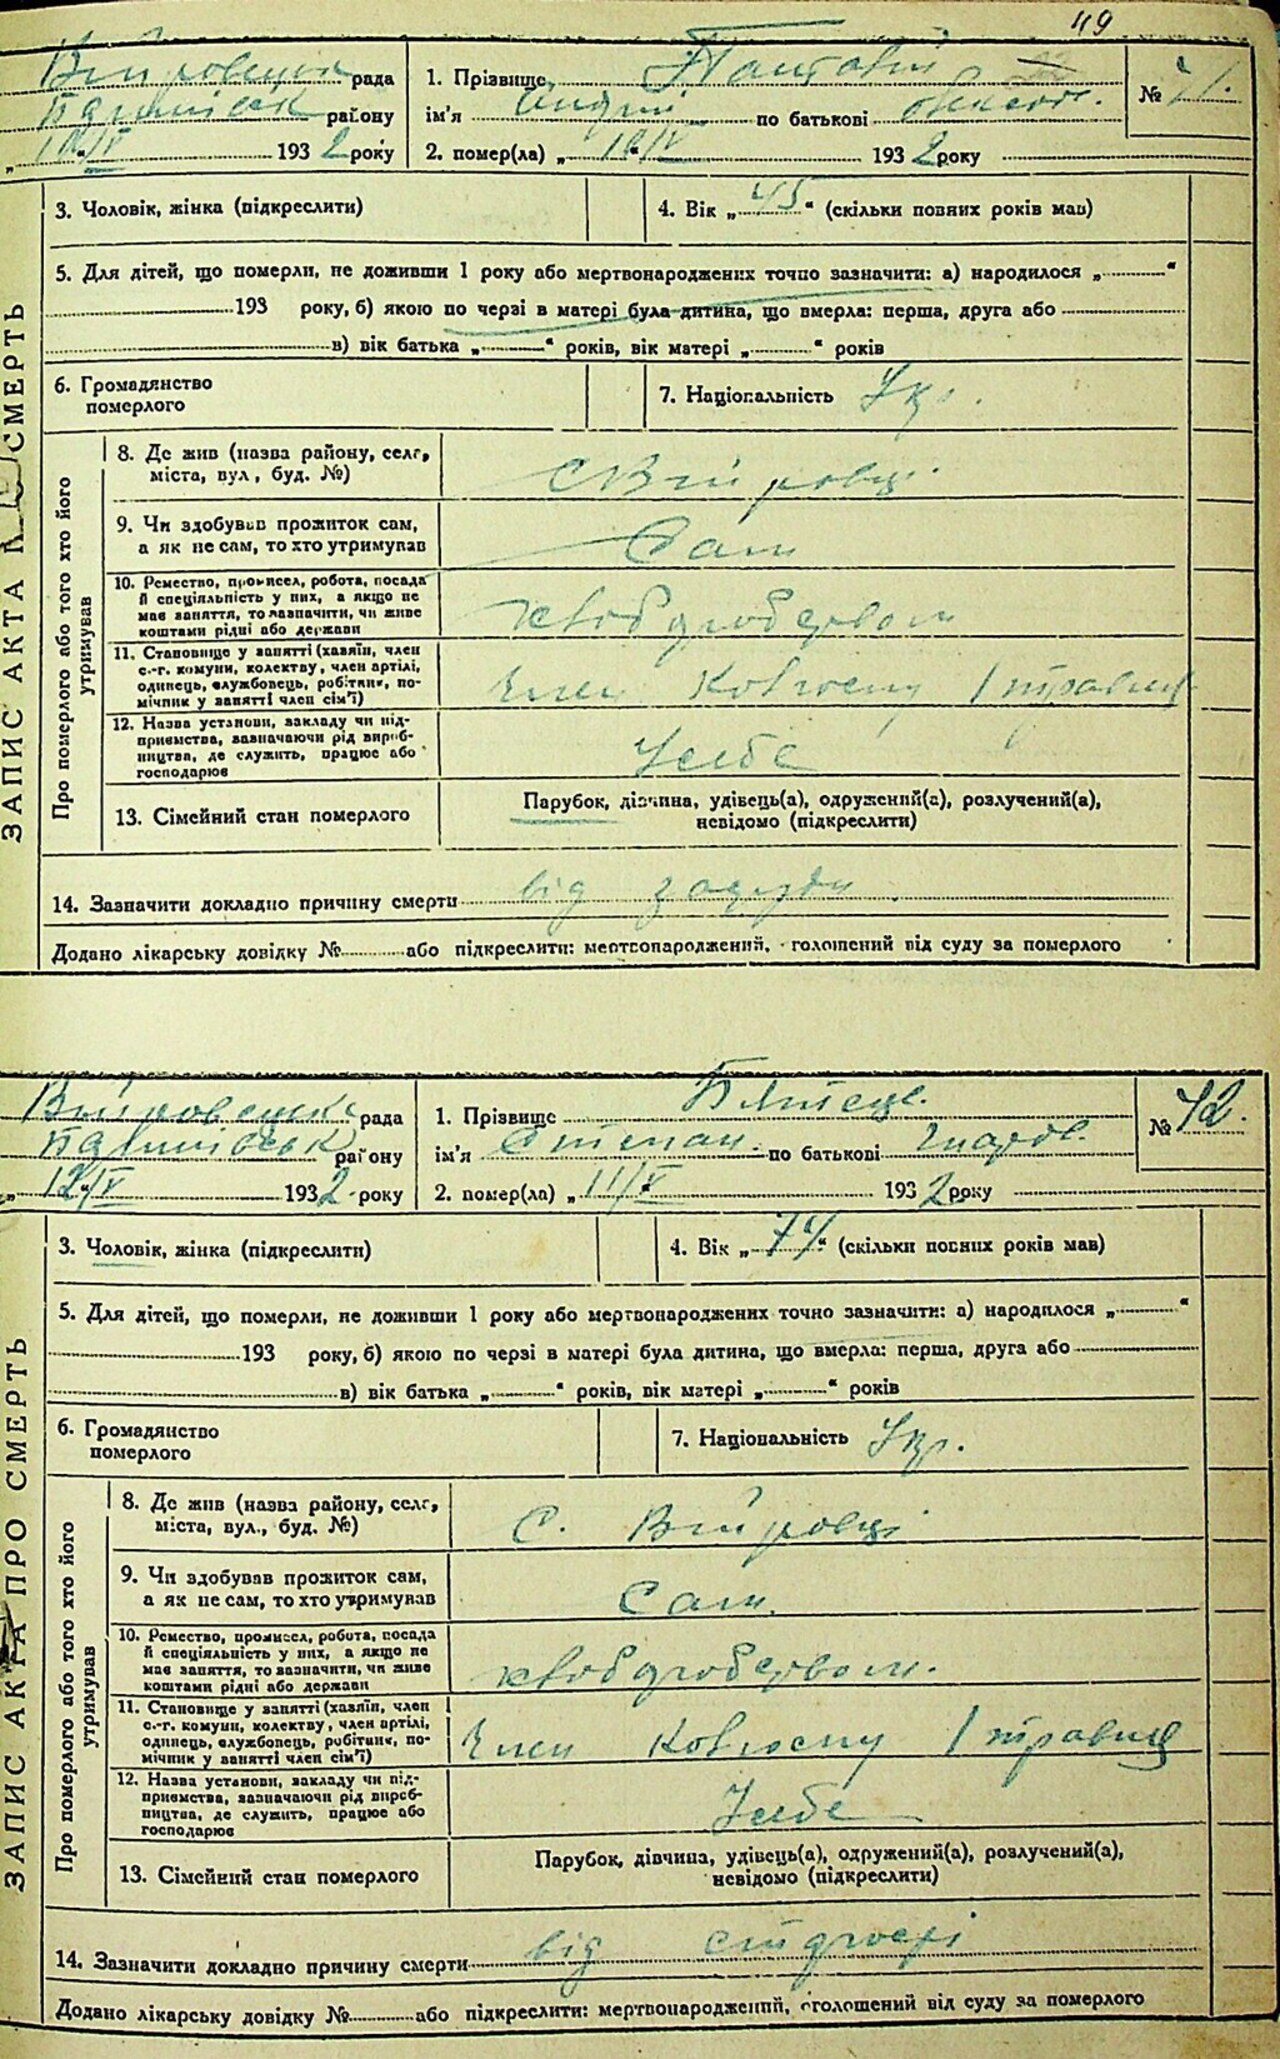 49
рада
району
193 2 року
1. Прізвище
№
ім'я по батькові
2. помер(ла) „ 193 2 року
3. Чоловік, жінка (підкреслити)
4. Вік „ 45 “ (скільки повних років мав)
5. Для дітей, що померли, не доживши 1 року або мертвонароджених точно зазначити: а) народилося „ “
193 року, б) якою по черзі в матері була дитина, що вмерла: перша, друга або
в) вік батька „ “ років, вік матері „ “ років
6. Громадянство
померлого
7. Національність Укр.
ЗАПИС АКТА СМЕРТЬ
Про померлого або того хто його
утримував
8. Де жив (назва району, села,
міста, вул., буд. №)
с Війтівці
9. Чи здобував прожиток сам,
а як не сам, то хто утримував
Сам
10. Ремество, промисел, робота, посада
й спеціяльність у них, а якщо не
має заняття, то зазначити, чи живе
коштами рідні або держави
хліборобством
11. Становище у занятті (хазяїн, член
с.-г. комуни, колективу, член артілі,
одинець, службовець, робітник, по-
мічник у занятті член сім'ї)
Член Колгоспу 1 травня
12. Назва установи, закладу чи під-
приємства, зазначаючи рід вироб-
ництва, де служить, працює або
господарює
У себе
13. Сімейний стан померлого
Парубок, дівчина, удівець(а), одружений(а), розлучений(а),
невідомо (підкреслити)
14. Зазначити докладно причину смерти від
Додано лікарську довідку № або підкреслити: мертвонароджений, оголошений від суду за померлого
рада
району
12/V 193 2 року
1. Прізвище
№ 42.
ім'я Степан по батькові
2. помер(ла) „ 11/V 193 2 року
3. Чоловік, жінка (підкреслити)
4. Вік „ 74 “ (скільки повних років мав)
5. Для дітей, що померли, не доживши 1 року або мертвонароджених точно зазначити: а) народилося „ “
193 року, б) якою по черзі в матері була дитина, що вмерла: перша, друга або
в) вік батька „ “ років, вік матері „ “ років
6. Громадянство
померлого
7. Національність Укр.
ЗАПИС АКТА ПРО СМЕРТЬ
Про померлого або того хто його
утримував
8. Де жив (назва району, села,
міста, вул., буд. №)
с. Війтівці
9. Чи здобував прожиток сам,
а як не сам, то хто утримував
Сам.
10. Ремество, промисел, робота, посада
й спеціяльність у них, а якщо не
має заняття, то зазначити, чи живе
коштами рідні або держави
хліборобством.
11. Становище у занятті (хазяїн, член
с.-г. комуни, колективу, член артілі,
одинець, службовець, робітник, по-
мічник у занятті член сім'ї)
Член Колгоспу 1 травня
12. Назва установи, закладу чи під-
приємства, зазначаючи рід вироб-
ництва, де служить, працює або
господарює
У себе
13. Сімейний стан померлого
Парубок, дівчина, удівець(а), одружений(а), розлучений(а),
невідомо (підкреслити)
14. Зазначити докладно причину смерти від старости
Додано лікарську довідку № або підкреслити: мертвонароджений, оголошений від суду за померлого